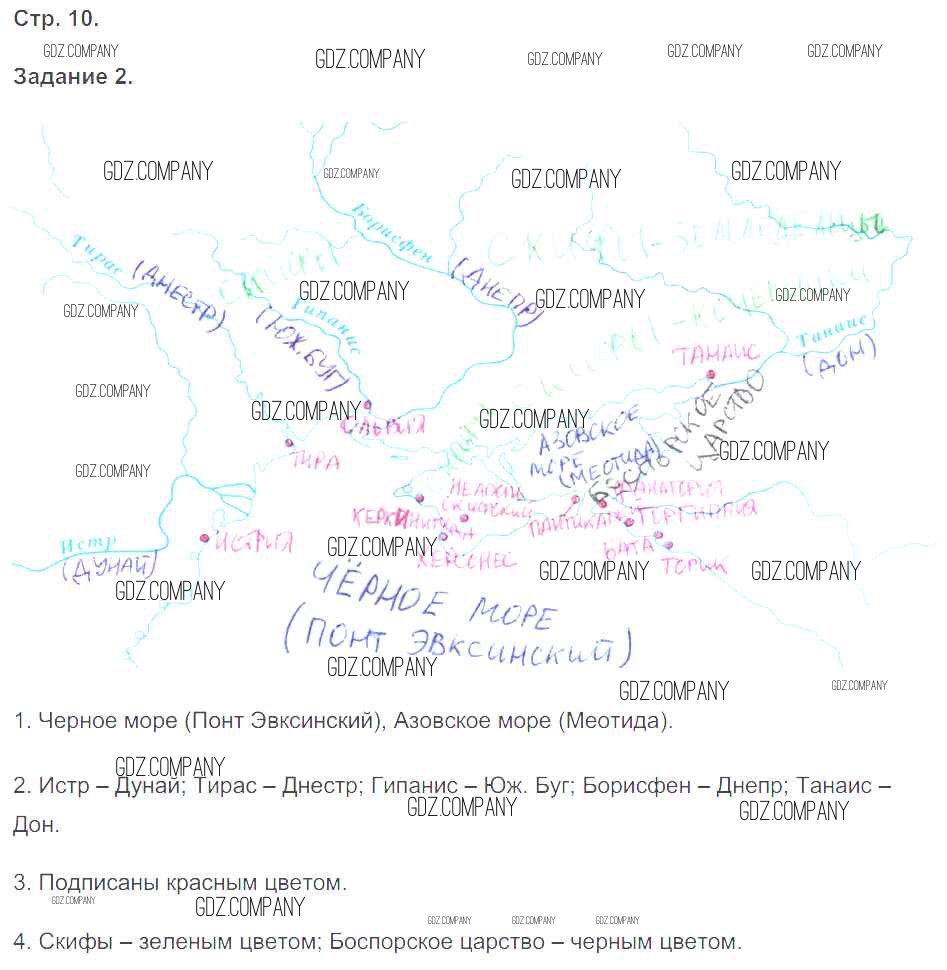 Стр. 10.
GDZ.COMPANY GDZ.COMPANY GDZ.COMPANY GDZ.COMPANY GDZ.COMPANY
Задание 2.
GDZ.COMPANY GDZ.COMPANY GDZ.COMPANY GDZ.COMPANY
Борисфен
СКИФЫ-ЗЕМЛЕДЕЛЬЦЫ
Тирас
(ДНЕСТР)
СКИФЫ
(ДНЕПР)
GDZ.COMPANY GDZ.COMPANY GDZ.COMPANY
GDZ.COMPANY
Гипанис
(ЮЖ. БУГ)
СКИФЫ-КОЧЕВНИКИ
Танаис
(ДОН)
ТАНАИС
GDZ.COMPANY
GDZ.COMPANY GDZ.COMPANY
ОЛЬВИЯ
АЗОВСКОЕ
МОРЕ
(МЕОТИДА)
БОСПОРСКОЕ
ЦАРСТВО
GDZ.COMPANY
ТИРА
GDZ.COMPANY
НЕАПОЛЬ
СКИФСКИЙ
ФАНАГОРИЯ
КЕРКИНИТИДА
ПАНТИКАПЕЙ
ГОРГИППИЯ
Истр
(ДУНАЙ)
ИСТРИЯ
GDZ.COMPANY
ХЕРСОНЕС
БАТА
ТОРИК
GDZ.COMPANY GDZ.COMPANY GDZ.COMPANY
ЧЁРНОЕ МОРЕ
(ПОНТ ЭВКСИНСКИЙ)
GDZ.COMPANY
GDZ.COMPANY GDZ.COMPANY
1. Черное море (Понт Эвксинский), Азовское море (Меотида).
GDZ.COMPANY
2. Истр – Дунай; Тирас – Днестр; Гипанис – Юж. Буг; Борисфен – Днепр; Танаис –
GDZ.COMPANY GDZ.COMPANY
Дон.
3. Подписаны красным цветом.
GDZ.COMPANY GDZ.COMPANY
GDZ.COMPANY GDZ.COMPANY GDZ.COMPANY
4. Скифы – зеленым цветом; Боспорское царство – черным цветом.